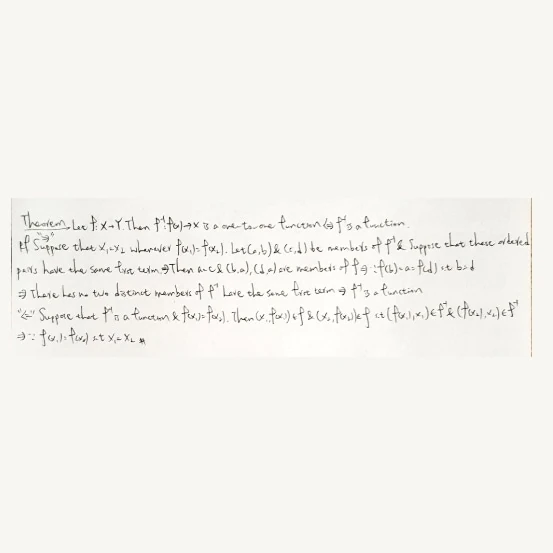 Theorem Let f: X→Y. Then f⁻¹: f(x)→X is a one-to-one function ⇔ f⁻¹ is a function.
pf "⇒" Suppose that x₁=x₂ whenever f(x₁)=f(x₂). Let (a,b) & (c,d) be members of f⁻¹ & Suppose that these ordered
pairs have the same first term ⇒ Then a=c & (b,a), (d,a) are members of f ⇒ ∵ f(b)=a=f(d) ∴ b=d
⇒ There has no two distinct members of f⁻¹ have the same first term ⇒ f⁻¹ is a function
"⇐" Suppose that f⁻¹ is a function & f(x₁)=f(x₂). Then (x₁,f(x₁))∈f & (x₂,f(x₂))∈f ∴ (f(x₁),x₁)∈f⁻¹ & (f(x₂),x₂)∈f⁻¹
⇒ ∵ f(x₁)=f(x₂) ∴ x₁=x₂